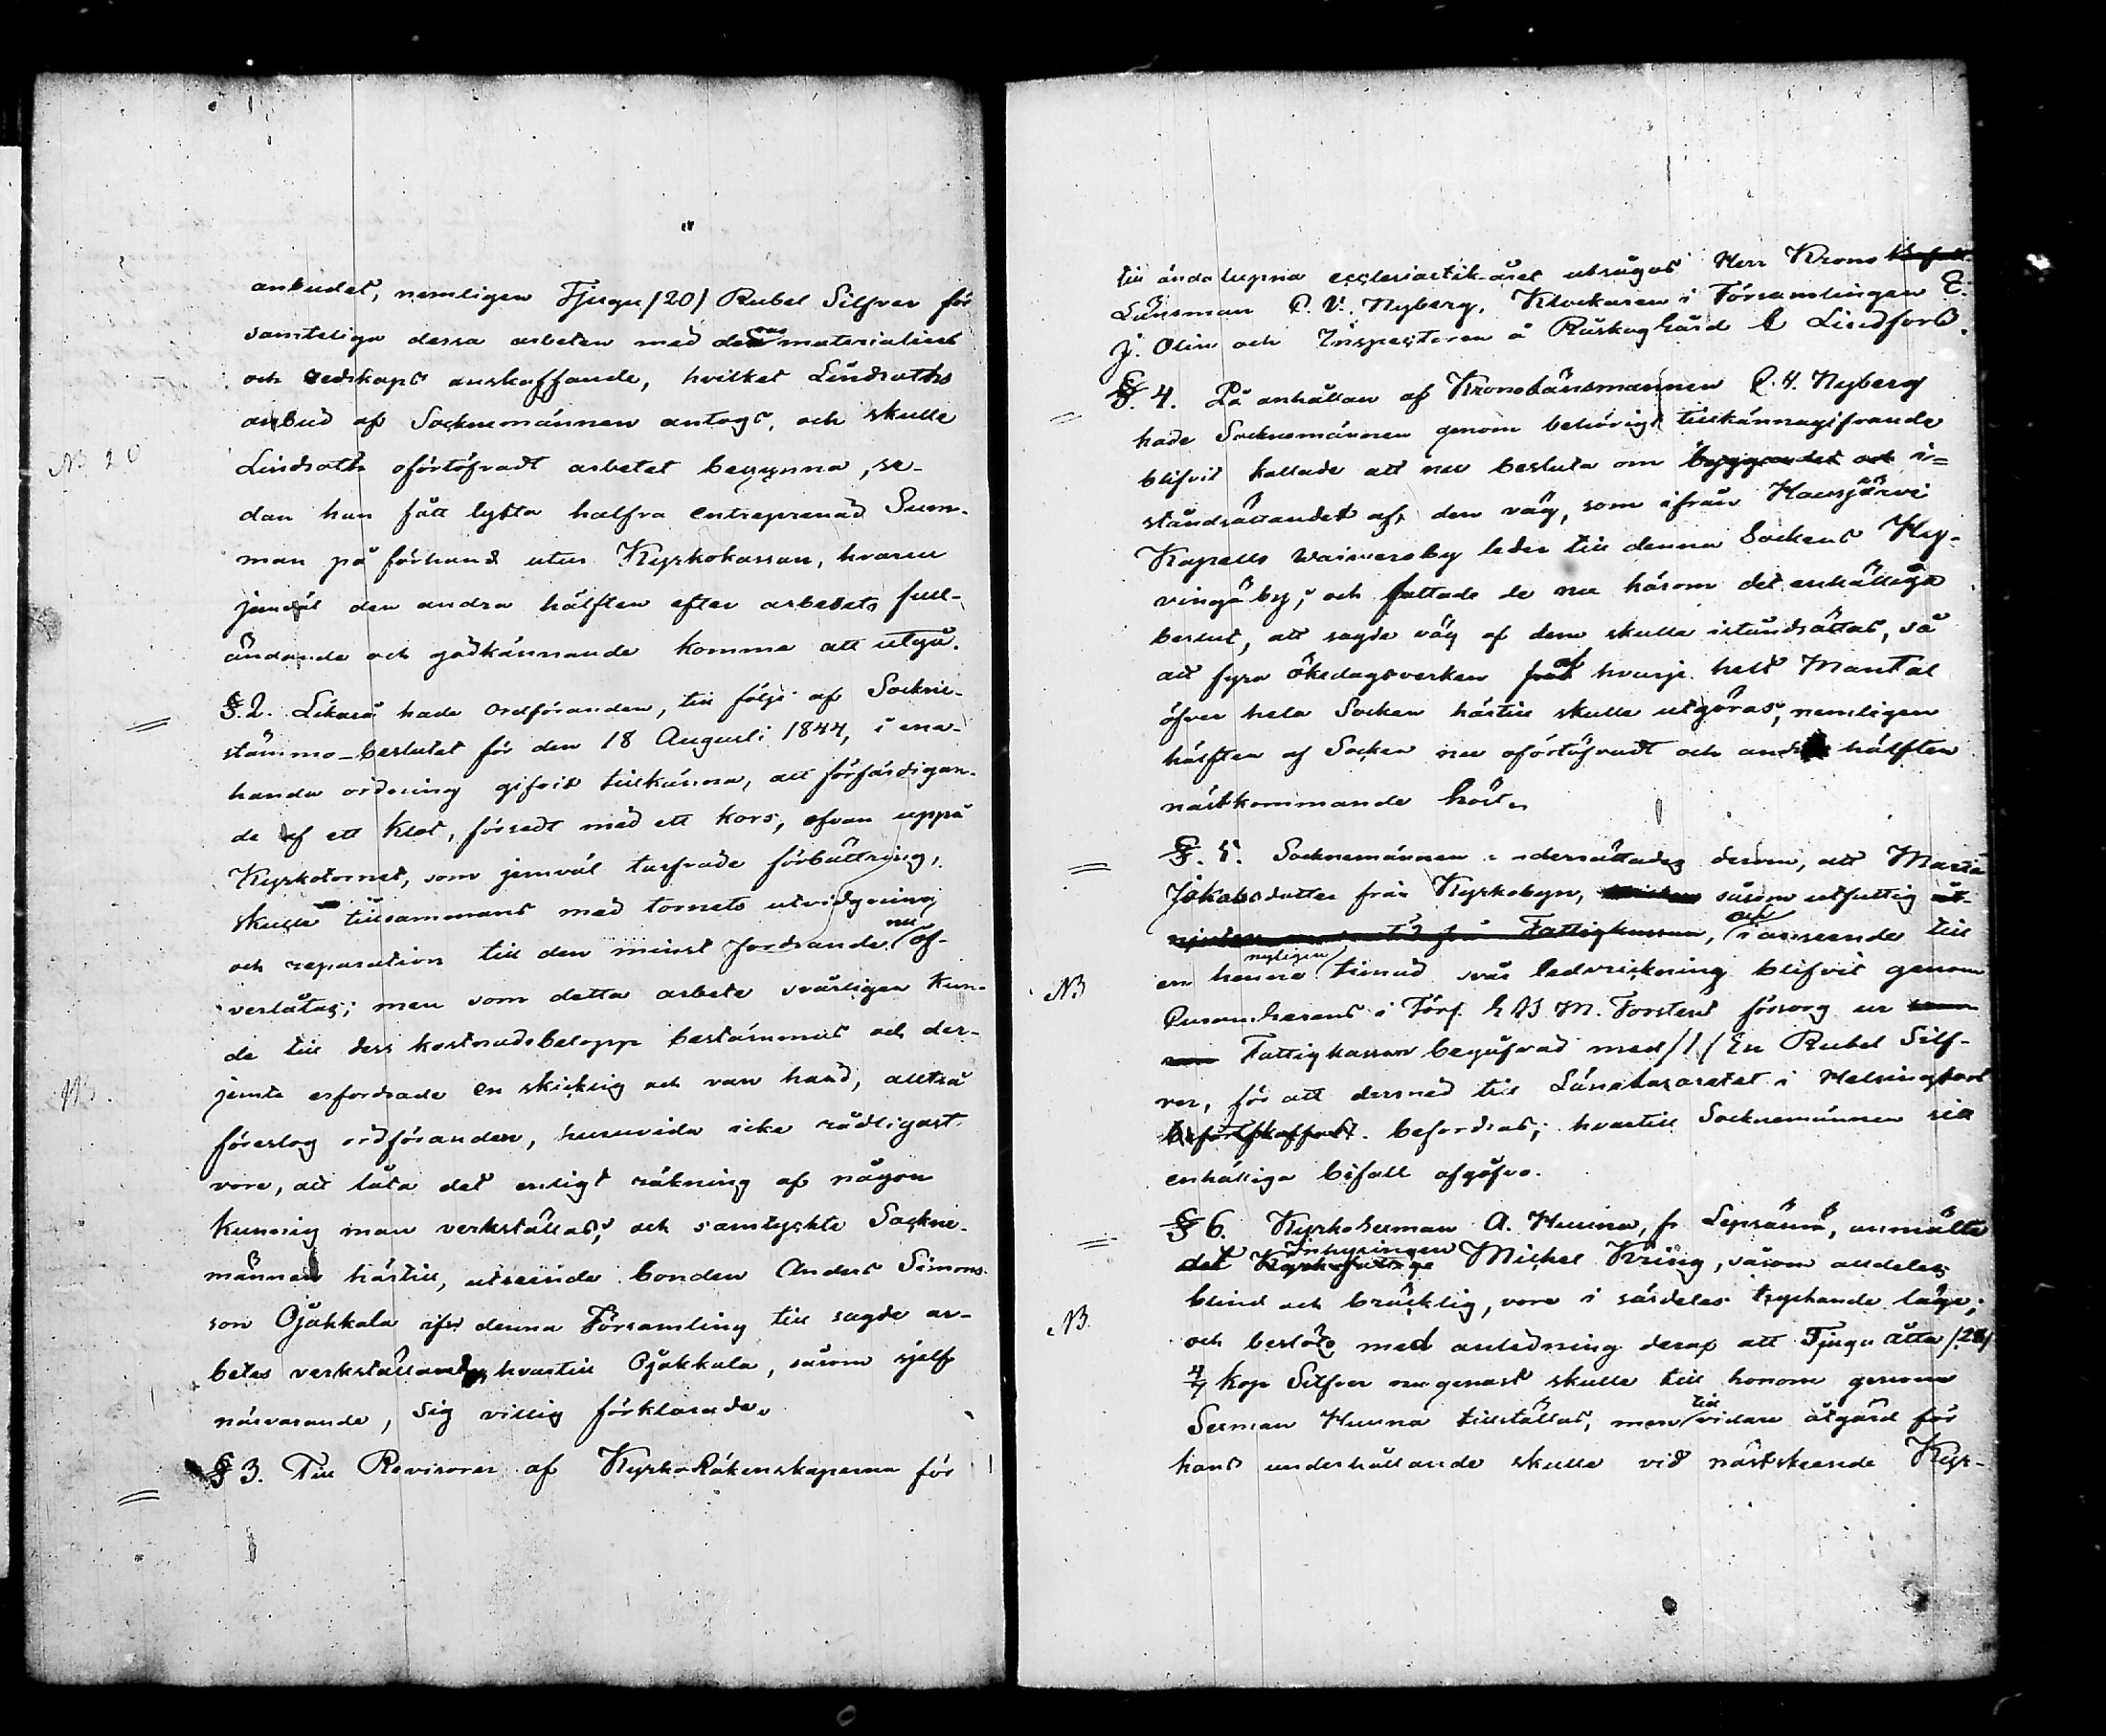 anbudet, nemligen Tjugu /20/ Rubel Silfver för
samteliga dessa arbeten med deras materialiers
och redskaps anskaffande, hvilket Lindroths
anbud af Socknemännen antogs, och skulle
NB 20
Lindroth oförtöfvadt arbetet begynna, se-
dan han fått lyfta halfva entreprenad Sum-
man på förhand utur Kyrkokassan, hvarur
jemväl den andra hälften efter arbetets full-
ändande och godkännande komme att utgå.
§. 2. Likaså hade Ordföranden, till följe af Sockne-
stämmo-beslutet för den 18 Augusti 1844, i ena-
handa ordning gifvit tillkänna, att förfärdigan-
de af ett klot, försedt med ett kors, ofvan uppå
Kyrkotornet, som jemväl tarfvade förbättring,
skulle tillsammans med tornets utvidgning
och reparation till den minst fordrande nu öf-
verlåtas; men som detta arbete svårligen kun-
de till dess kostnadsbelopp bestämmas och der-
NB.
jemte erfordrade en skicklig och van hand, alltså
föreslog ordföranden, huruvida icke rådligast
vore, att låta det enligt räkning af någon
kunnig man verkställas, och samtyckte Sockne-
männen härtill, utseende bonden Anders Simons-
son Ojakkala ifrån denna Församling till sagde ar-
betes verkställande, hvartill Ojakkala, såsom sjelf
närvarande, sig villig förklarade.
§ 3. Till Revisorer af KyrkoRäkenskaperna för
till ända lupna ecclesiastik-året utsågos Herr Krono
Länsman C. V. Nyberg, Klockaren i Församlingen E.
J. Olin och Inspectoren å Råskog Gård C Lindfors.
§. 4. På anhållan af Kronolänsmannen C. V. Nyberg
hade Socknemännen genom behörigt tillkännagifvande
blifvit kallade att nu besluta om byggandet och i-
ståndsättandet af den väg, som ifrån Hausjärvi
Kapells Waiveroby leder till denna Sockens Hy-
vingå by; och fattade de nu härom det enhälliga
beslut, att sagde väg af dem skulle iståndsättas, så
att fyra ökedagsverken af hvarje helt Mantal
öfver hela Socken härtill skulle utgöras, nemligen
hälften af Socken nu oförtöfvadt och andra hälften
nästkommande höst.
§. 5. Socknemännen underrättades derom, att Maria
Jakobsdotter från Kyrkobyn, såsom utfattig
Fattigkassan, och i anseende till
en henne nyligen timad svår ledvrickning blifvit genom
NB
Fattigkassan begåfvad med /1/ En Rubel Silf-
ver, för att dermed till Länelazarettet i Helsingfors
befordras; hvartill Socknemännen sitt
enhälliga bifall afgåfvo.
§ 6. Kyrko Sexman A. Huina, fr Lepsämä, anmälte
det Inhysingen Michel Kring, såsom alldeles
blind och bräcklig, vore i särdeles tryckande läge;
NB.
och beslöts med anledning deraf att Tjugu åtta /28/
4/7 kop Silfver nu genast skulle till honom genom
Sexman Huina tillställas, men till vidare åtgärd för
hans underhållande skulle vid nästskeende Kyr-